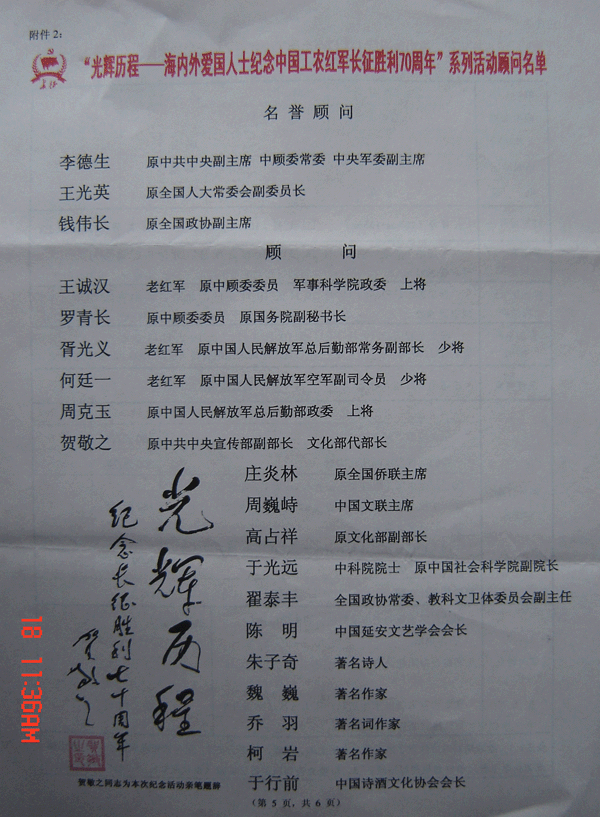 附件2：
“光辉历程——海内外爱国人士纪念中国工农红军长征胜利70周年”系列活动顾问名单
长征
名誉顾问
李德生 原中共中央副主席 中顾委常委 中央军委副主席
王光英 原全国人大常委会副委员长
钱伟长 原全国政协副主席
顾 问
王诚汉 老红军 原中顾委委员 军事科学院政委 上将
罗青长 原中顾委委员 原国务院副秘书长
胥光义 老红军 原中国人民解放军总后勤部常务副部长 少将
何廷一 老红军 原中国人民解放军空军副司令员 少将
周克玉 原中国人民解放军总后勤部政委 上将
贺敬之 原中共中央宣传部副部长 文化部代部长
庄炎林 原全国侨联主席
周巍峙 中国文联主席
高占祥 原文化部副部长
于光远 中科院院士 原中国社会科学院副院长
翟泰丰 全国政协常委、教科文卫体委员会副主任
陈 明 中国延安文艺学会会长
朱子奇 著名诗人
魏 巍 著名作家
乔 羽 著名词作家
柯 岩 著名作家
于行前 中国诗酒文化协会会长
光辉历程
纪念长征胜利七十周年
贺敬之
贺敬之同志为本次纪念活动亲笔题辞
（第5页，共6页）
18 11:36AM